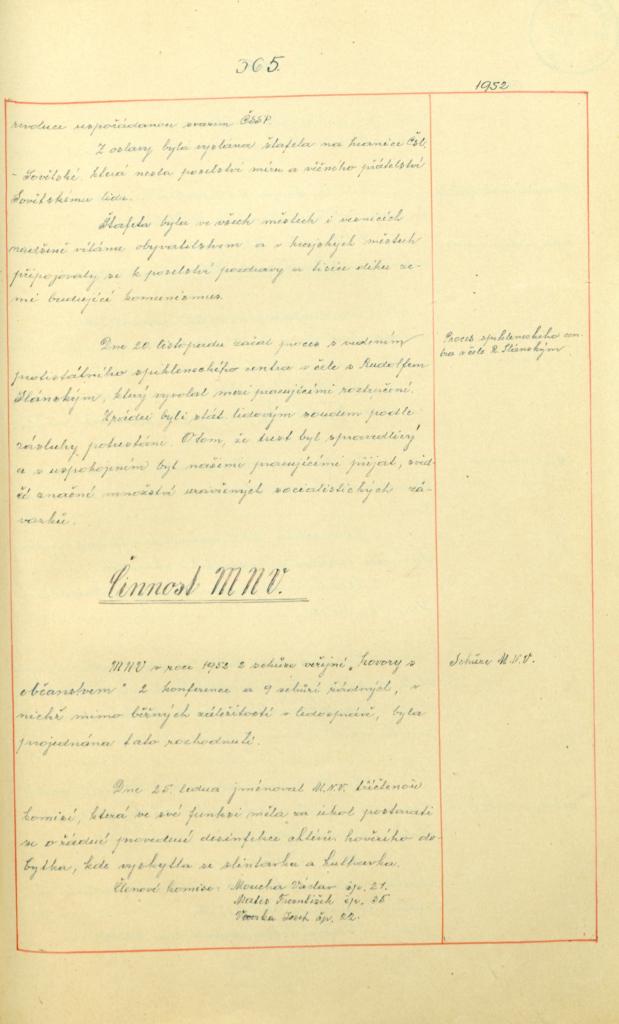 365.
1952
revoluce uspořádanou svazem ČSSP.
Z oslavy byla vyslána štafeta na hranice Čsl.
- Sovětské která nesla poselství míru a věčného přátelství
Sovětskému lidu.
Štafeta byla ve všech městech i vesnicích
nadšeně vítána obyvatelstvem a v krajských městech
připojovaly se k poselství pozdravy a tisíce díků ze-
mi budující komunismus.
Dne 20. listopadu začal proces s vedením
protistátního spikleneckého centra v čele s Rudolfem
Slánským, který vyvolal mezi pracujícími roztrpčení.
Zrádci byli stát. lidovým soudem podle
zásluhy potrestáni. O tom, že trest byl spravedlivý
a s uspokojením byl našimi pracujícími přijat, svěd-
čí značné množství uzavřených socialistických zá-
vazků.
Proces spikleneckého cen-
tra v čele R. Slánským
Činnost MNV.
MNV v roce 1952 2 schůze veřejné „hovory s
občanstvem" 2 konference a 9 schůzí řádných, v
nichž mimo běžných záležitostí v lidosprávě, byla
projednána tato rozhodnutí.
Schůze M.N.V.
Dne 25. ledna jmenoval M.N.V. tříčlenou
komisi, která ve své funkci měla za úkol postarati
se o řádné provedené desinfekce chlévů hovězího do-
bytka, kde vyskytla se slintavka a kulhavka.
Členové komise: Moucha Václav čp. 21.
František čp. 25
Josef čp. 22.